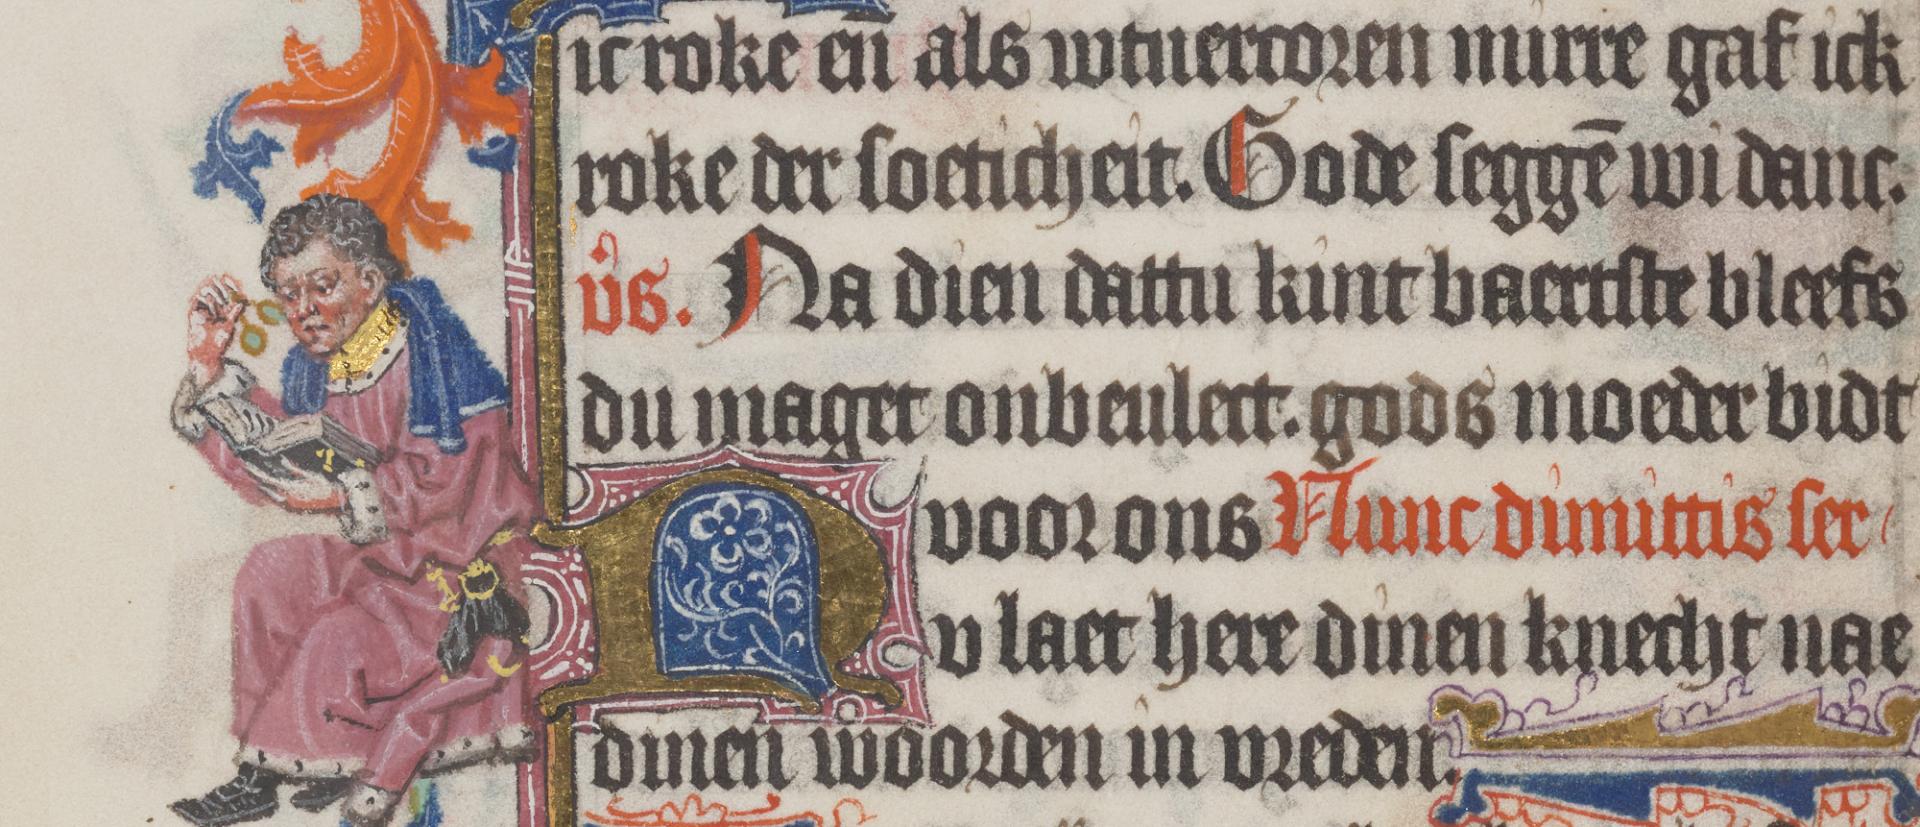 ic roke en̄ als wtuercoren mirre gaf ick
roke der soeticheit. Gode seggē wi danc.
v̊s. Na dien dattu kint baertste bleefs
du maget onbeulect. gods moeder bidt
voor ons Nunc dimittis ser
Nv laet here dinen knecht nae
dinen woorden in vreden.